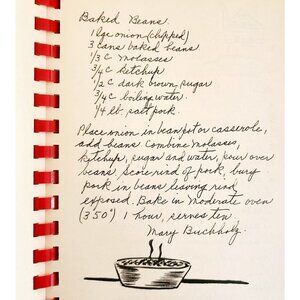 Baked Beans.
1 lge onion (chopped)
3 cans baked beans
1/3 c molasses
3/4 c ketchup
1/2 c dark brown sugar
3/4 c boiling water
1/4 lb. salt pork.
Place onion in beanpot or casserole,
add beans. Combine molasses,
ketchup, sugar and water, pour over
beans. Score rind of pork, bury
pork in beans, leaving rind
exposed. Bake in moderate oven
(350°) 1 hour, serves ten.
Mary Buchholz.